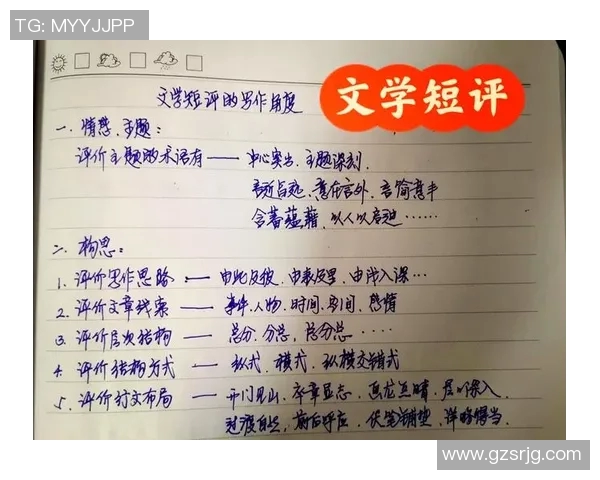 TG: MYYJJPP
文学短评
文学短评的写作角度
一、情感、主题:
评价主题的术语有——中心突出、主题深刻、
言近旨远、意在言外、言简意丰
含蓄蕴藉、以人以启迪……
二、构思:
1、评价写作思路——由此及彼、由表及里、由浅入深…
2、评价文章线索——事件、人物、时间、空间、感情
3、评价层次结构——总分、分总、总分总……
4、评价结构方式——纵式、横式、纵横交错式
5、评价行文布局——开门见山、卒章显志、画龙点睛、层层深入、
过渡自然、前后呼应、伏笔铺垫、详略得当、
www.gzsrjg.com